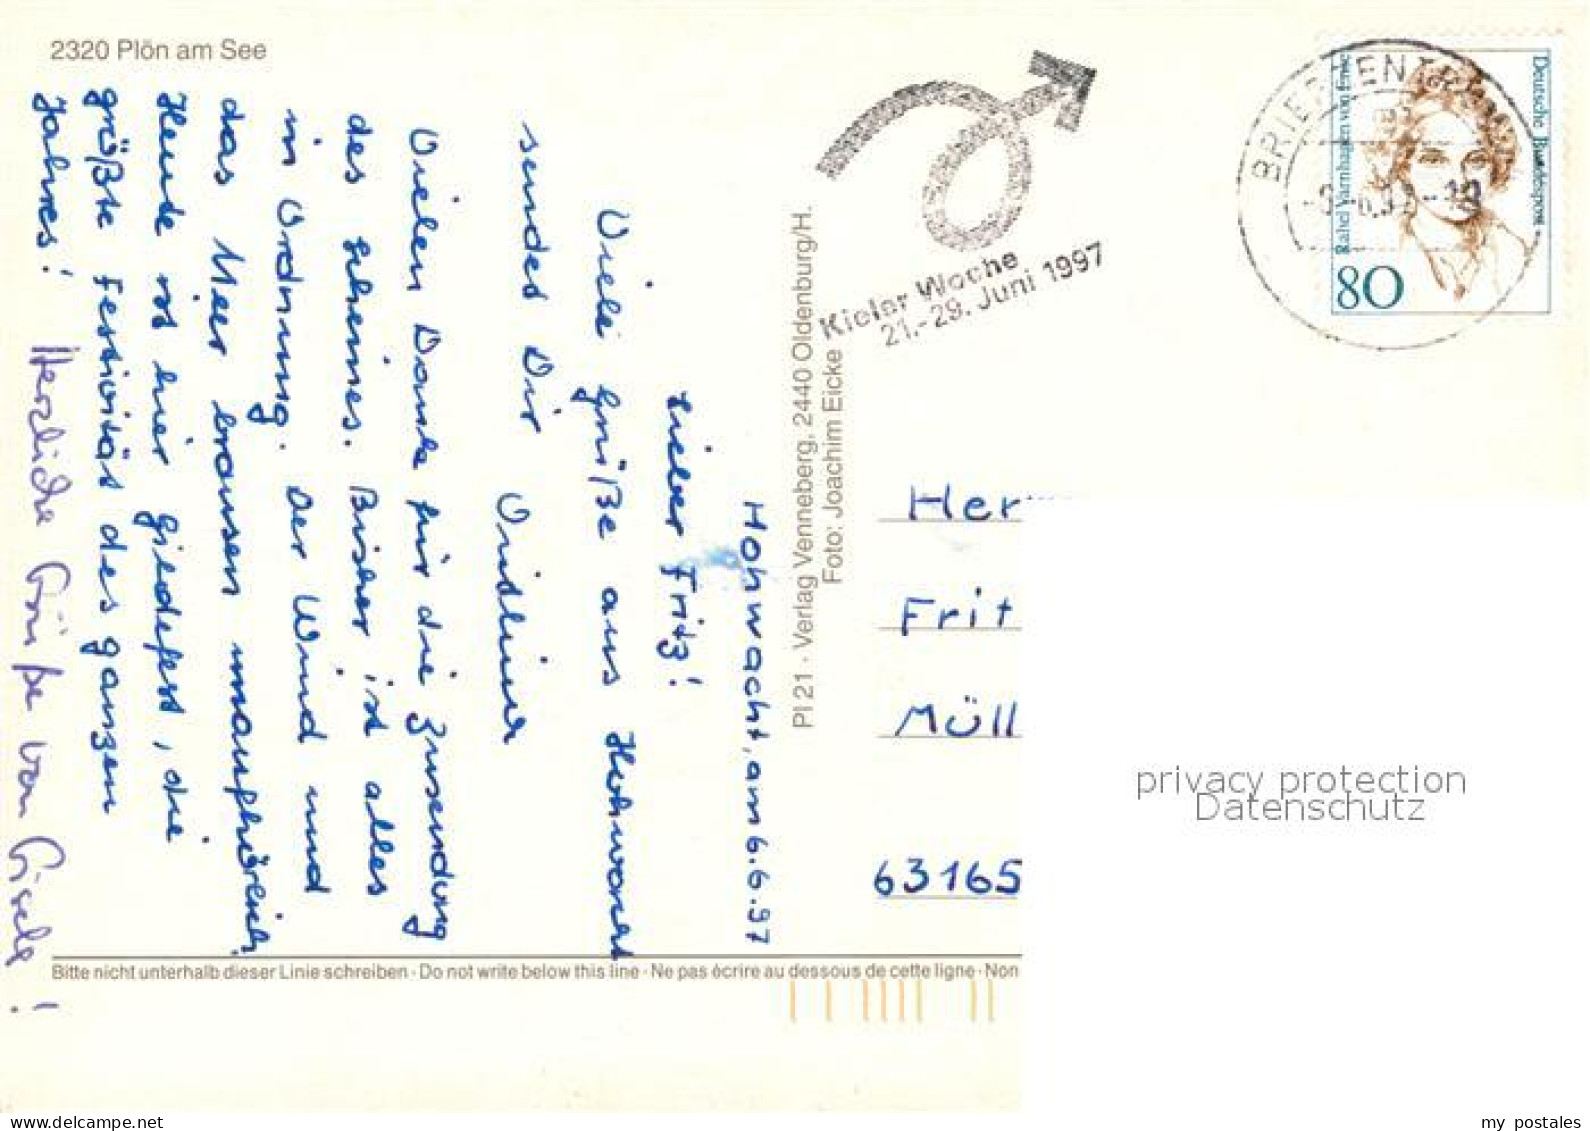 2320 Plön am See
Hohwacht, am 6.6.97
Lieber Fritz!
Viele Grüße aus Hohwacht
sendet Dir
Vielen Dank für die Zusendung
des Scheines. Bisher ist alles
in Ordnung. Der Wind und
das Meer brausen unaufhörlich.
Heute ist hier Gildefest, die
größte Festivität des ganzen
Jahres!
Herzliche Grüße von Gisela!
Pl 21 · Verlag Venneberg, 2440 Oldenburg/H.
Foto: Joachim Eicke
Kieler Woche
21.-29. Juni 1997
Deutsche Bundespost
Rahel Varnhagen von Ense
80
Her
Frit
Müll
63165
privacy protection
Datenschutz
Bitte nicht unterhalb dieser Linie schreiben · Do not write below this line · Ne pas écrire au dessous de cette ligne · Non
my-postales.com
my postales